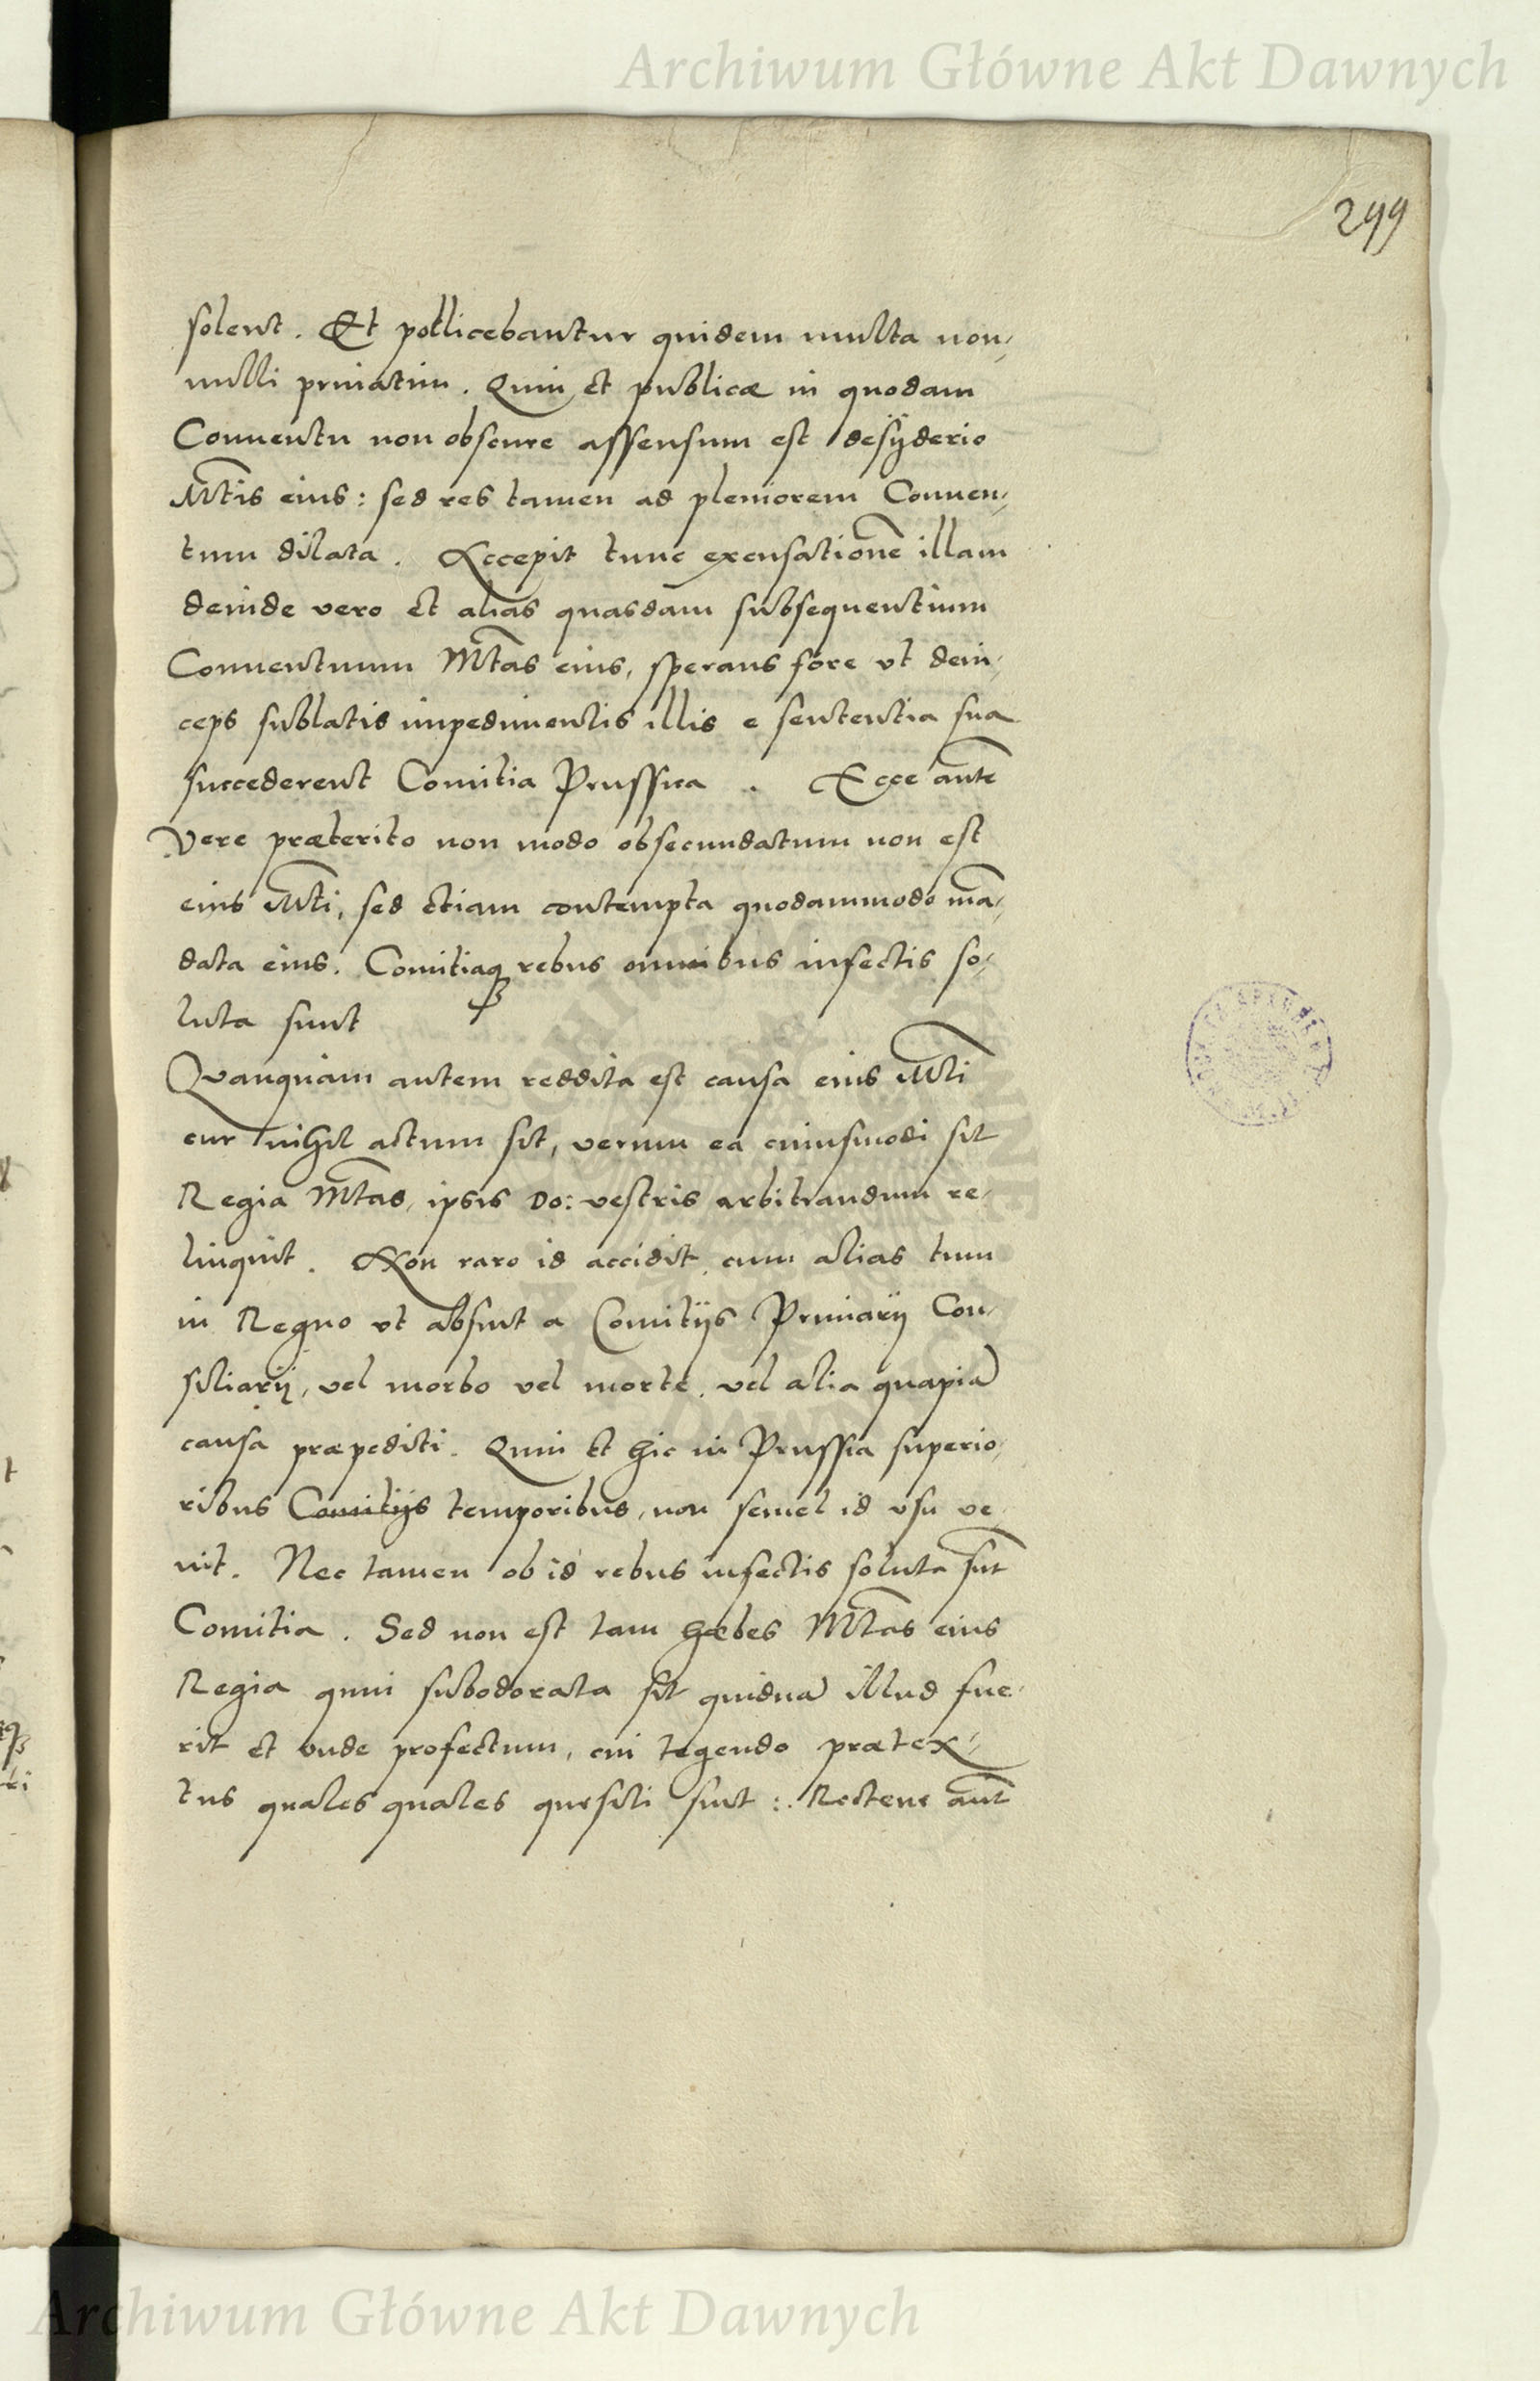 Archiwum Główne Akt Dawnych
299
solent. Et pollicebantur quidem multa non-
nulli priuatim. Quin et publicæ in quodam
Conuentu non obscure assensum est desÿderio
Mtis eius: sed res tamen ad pleniorem Conuen-
tum dilata. Accepit tunc excusationē illam
deinde vero et alias quasdam subsequentium
Conuentuum Mtas eius, sperans fore vt dein-
ceps sublatis impedimentis illis e sententia sua
succederent Comitia Prussica. Ecce autē
Vere præterito non modo obsecundatum non est
eius Mti, sed etiam contempta quodammodo mā-
data eius. Comitiaq rebus omnibus infectis so-
luta sunt
Quanquam autem reddita est causa eius Mti
cur nihil actum sit, verum ea cuiusmodi sit
Regia Mtas, ipsis Do: vestris arbitrandum re-
linquit. Non raro id accidit, cum alias tum
in Regno vt absint a Comitijs Primarij Con-
siliarij, vel morbo vel morte, vel alia quapiā
causa præpediti. Quin et hic in Prussia superio-
ribus Comitijs temporibus, non semel id vsu ve-
nit. Nec tamen ob id rebus infectis soluta sūt
Comitia. Sed non est tam hæbes Mtas eius
Regia quin subodorata sit quidnā illud fue-
rit et vnde profectum, cui tegendo prætex-
tus quales quales quesiti sint: Rectene aūt
Archiwum Główne Akt Dawnych